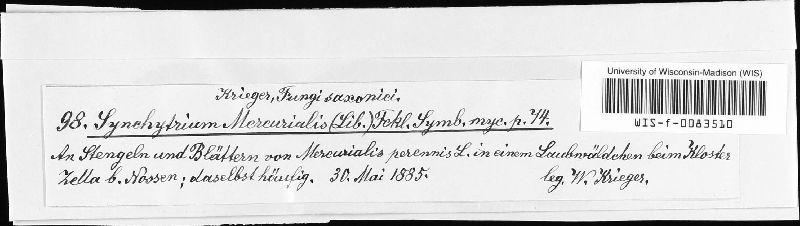 Krieger, Fungi saxonici.
98. Synchytrium Mercurialis (Lib.) Fckl. Symb. myc. p. 74.
An Stengeln und Blättern von Mercurialis perennis L. in einem Laubwäldchen beim Kloster
Zella b. Nossen; daselbst häufig. 30. Mai 1885. leg. W. Krieger.
University of Wisconsin-Madison (WIS)
WIS-f-0083510